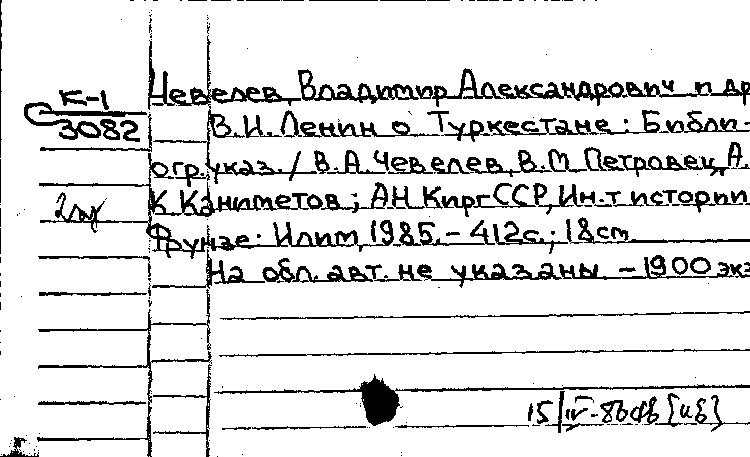 К-1
3082
2 экз
Чевелев, Владимир Александрович и др
В.И. Ленин о Туркестане: Библи-
огр. указ. / В.А. Чевелев, В.М. Петровец, А.
К. Каниметов; АН КиргССР, Ин-т истории
Фрунзе: Илим, 1985. - 412с.; 18см
На обл. авт. не указаны - 1900 экз
15/IV-86